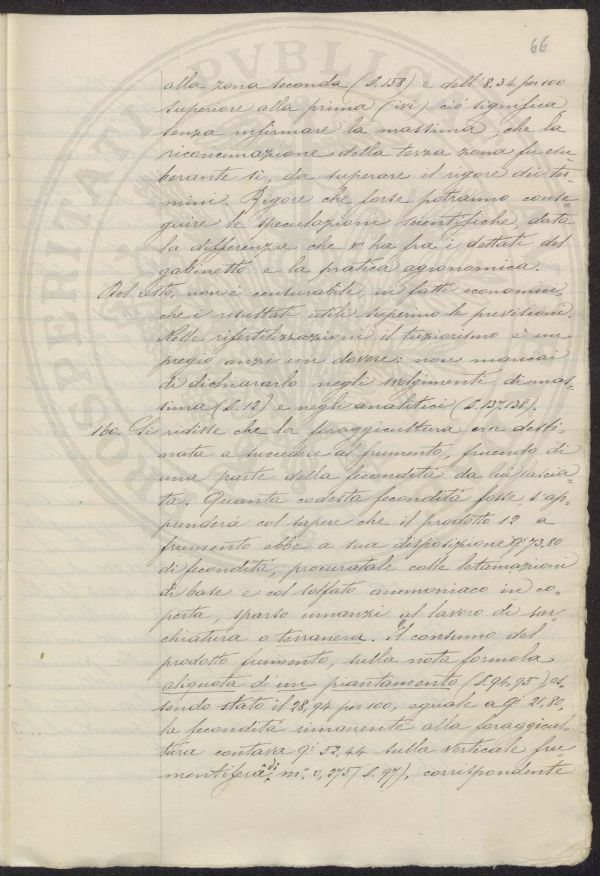 66
alla zona seconda (S. 158) e dell' 8,34 per 100
superiore alla prima (ivi), ciò significa,
senza infirmare la massima, che la
riconcimazione della terza zona fu esu=
berante sì, da superare il rigore dei ter=
mini. Rigore che forse potranno conse=
guire le speculazioni scientifiche, data
la differenza che vi ha fra i dettati del
gabinetto e la pratica agronomica.
Del resto, non è censurabile in fatti economici,
che i resultati utili superino le previsioni.
Nelle rifertilizzazioni il tuziorismo è un
pregio anzi un dovere: non mancai
di dichiararlo negli svolgimenti di mas=
sima (S. 12) e negli analitici (S. 137.138).
160. Si ridisse che la foraggicultura era desti=
nata a succedere al frumento, fruendo di
una parte della fecondità da lui lascia=
ta. Quanta codesta fecondità fosse s'ap=
prenderà col sapere che il prodotto 12 a
frumento ebbe a sua disposizione qi 73,80
di fecondità, procuratale colle letamazioni
di base e col solfato ammoniaco in co=
perta, sparso innanzi al lavoro di sar=
chiatura o terranera. Il consumo del
prodotto frumento, sulla nota formola
aliquota d'un piantamento (S. 94, 95), es=
sendo stato il 28,94 per 100, eguale a qi 21.80,
la fecondità rimanente alla foraggicul=
tura contava qi 52,44 sulla verticale fru
mentifera di m. 0,275 (S. 97), corrispondente
PVBLIC
PROSPERITATI